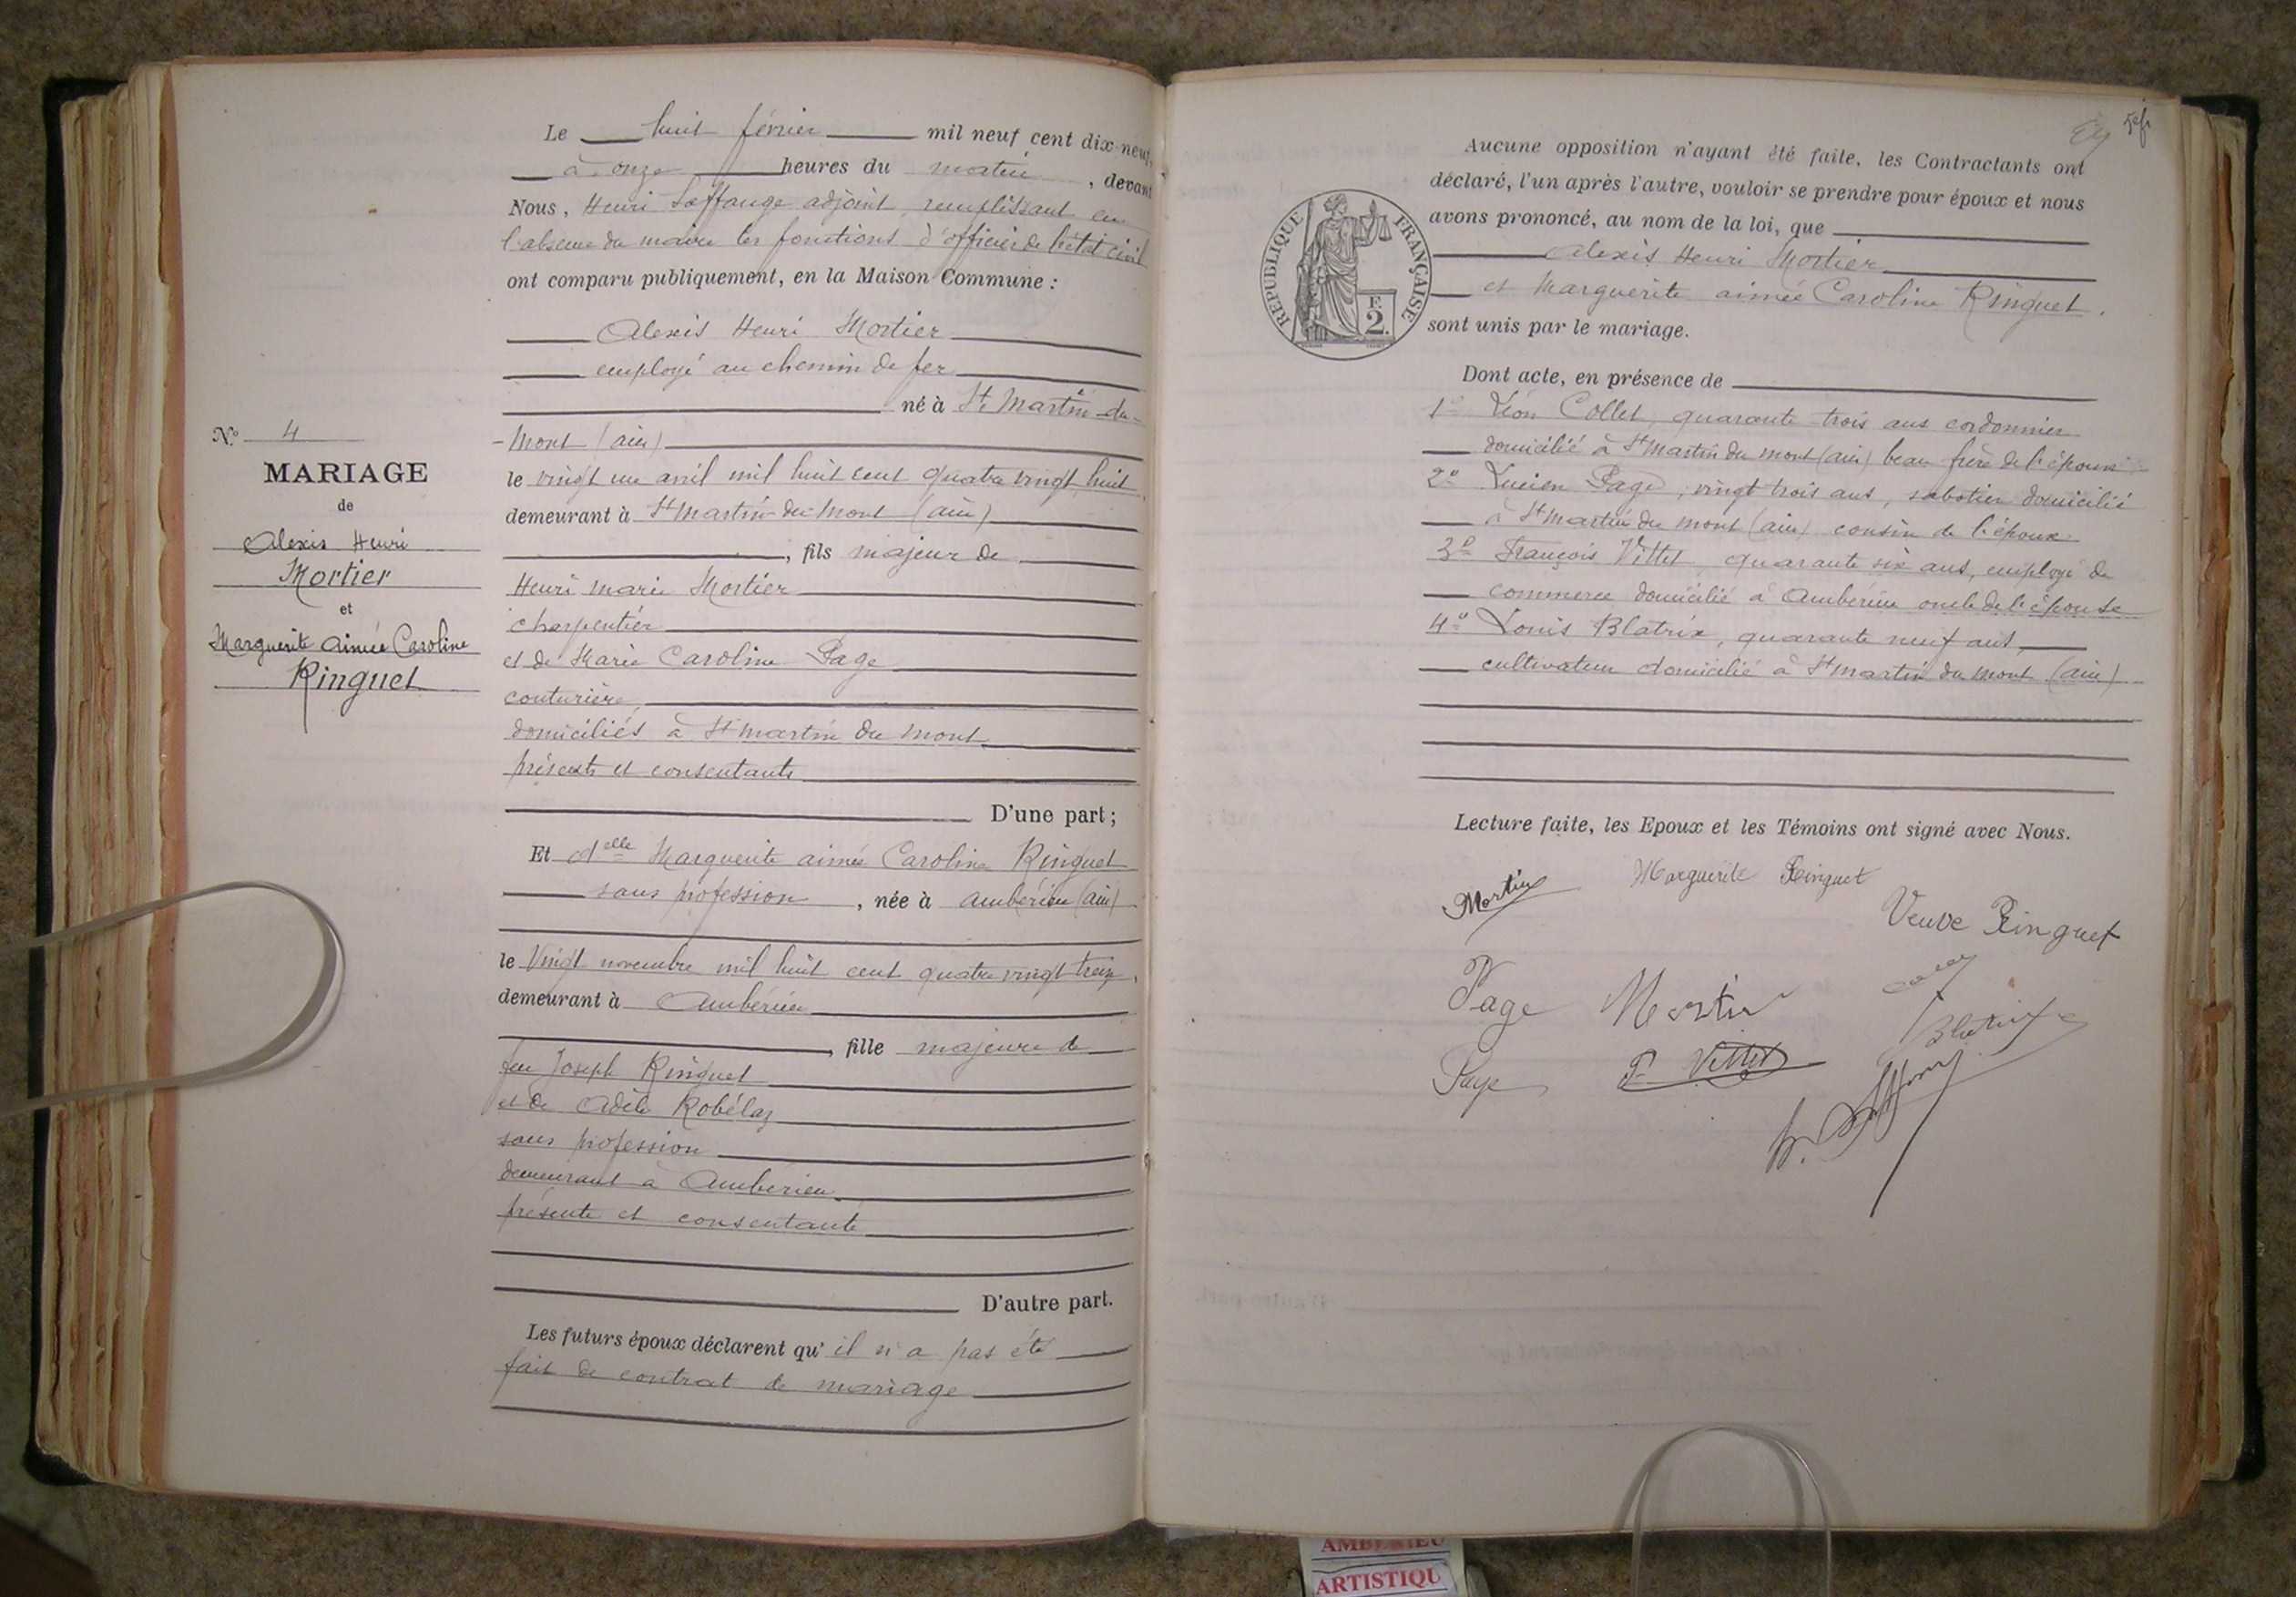 Le huit février mil neuf cent dix-neuf,
à onze heures du matin, devant
Nous, Henri Laffange adjoint, remplissant en
l'absence du maire les fonctions d'officier de l'état civil
ont comparu publiquement, en la Maison Commune :
Alexis Henri Mortier
employé au chemin de fer
né à St Martin-du-
-Mont (ain)
le vingt un avril mil huit cent quatre vingt huit,
demeurant à St Martin-du-Mont (ain)
, fils majeur de
Henri Marie Mortier
charpentier
et de Marie Caroline Page
couturière,
domiciliés à St Martin du Mont
présents et consentants
D'une part ;
Et Delle Marguerite aimée Caroline Ringuet
sans profession, née à ambérieu (ain)
le Vingt novembre mil huit cent quatre vingt treize,
demeurant à Ambérieu
, fille majeure de
feu Joseph Ringuet
et de Adèle Robélaz
sans profession
demeurant à Ambérieu
présente et consentante
D'autre part.
Les futurs époux déclarent qu'il n'a pas été
fait de contrat de mariage
N° 4
MARIAGE
de
Alexis Henri
Mortier
et
Marguerite aimée Caroline
Ringuet
Aucune opposition n'ayant été faite, les Contractants ont
déclaré, l'un après l'autre, vouloir se prendre pour époux et nous
avons prononcé, au nom de la loi, que
Alexis Henri Mortier
et Marguerite aimée Caroline Ringuet.
sont unis par le mariage.
REPUBLIQUE FRANÇAISE
F.
2.
Dont acte, en présence de
1° Léon Collet, quarante trois ans cordonnier
domicilié à St Martin du Mont (ain) beau frère de l'époux
2° Lucien Page, vingt trois ans, sabotier domicilié
à St Martin du Mont (ain) cousin de l'époux
3° François Vittet, quarante six ans, employé de
commerce domicilié à Ambérieu oncle de l'épouse
4° Louis Blatrix, quarante neuf ans,
cultivateur domicilié à St Martin du Mont (ain)
Lecture faite, les Epoux et les Témoins ont signé avec Nous.
Mortier Marguerite Ringuet
Veuve Ringuet
Page Mortier
Blatrix
Page F. Vittet
H. Laffange
AMBERIEU
ARTISTIQU